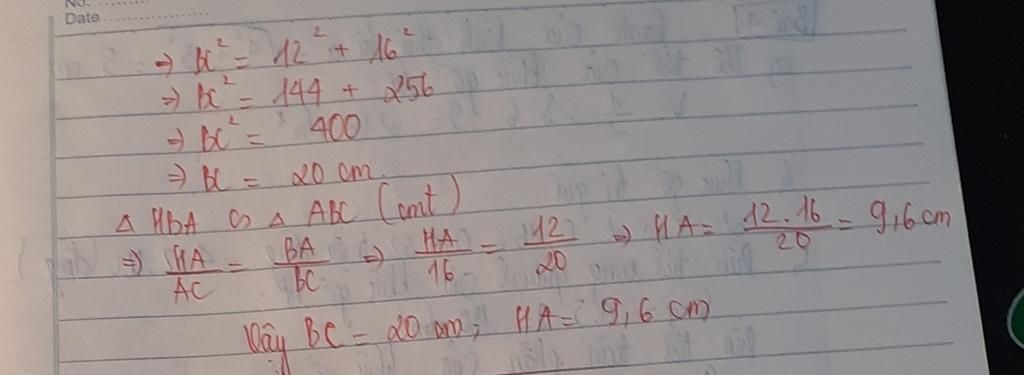 No.
Date
⇒ BC² = 12² + 16²
⇒ BC² = 144 + 256
⇒ BC² = 400
⇒ BC = 20 cm.
△ HBA ∽ △ ABC (cmt)
⇒ HA/AC = BA/BC ⇒ HA/16 = 12/20 ⇒ HA = 12.16/20 = 9,6 cm
Vậy BC = 20 cm; HA = 9,6 cm